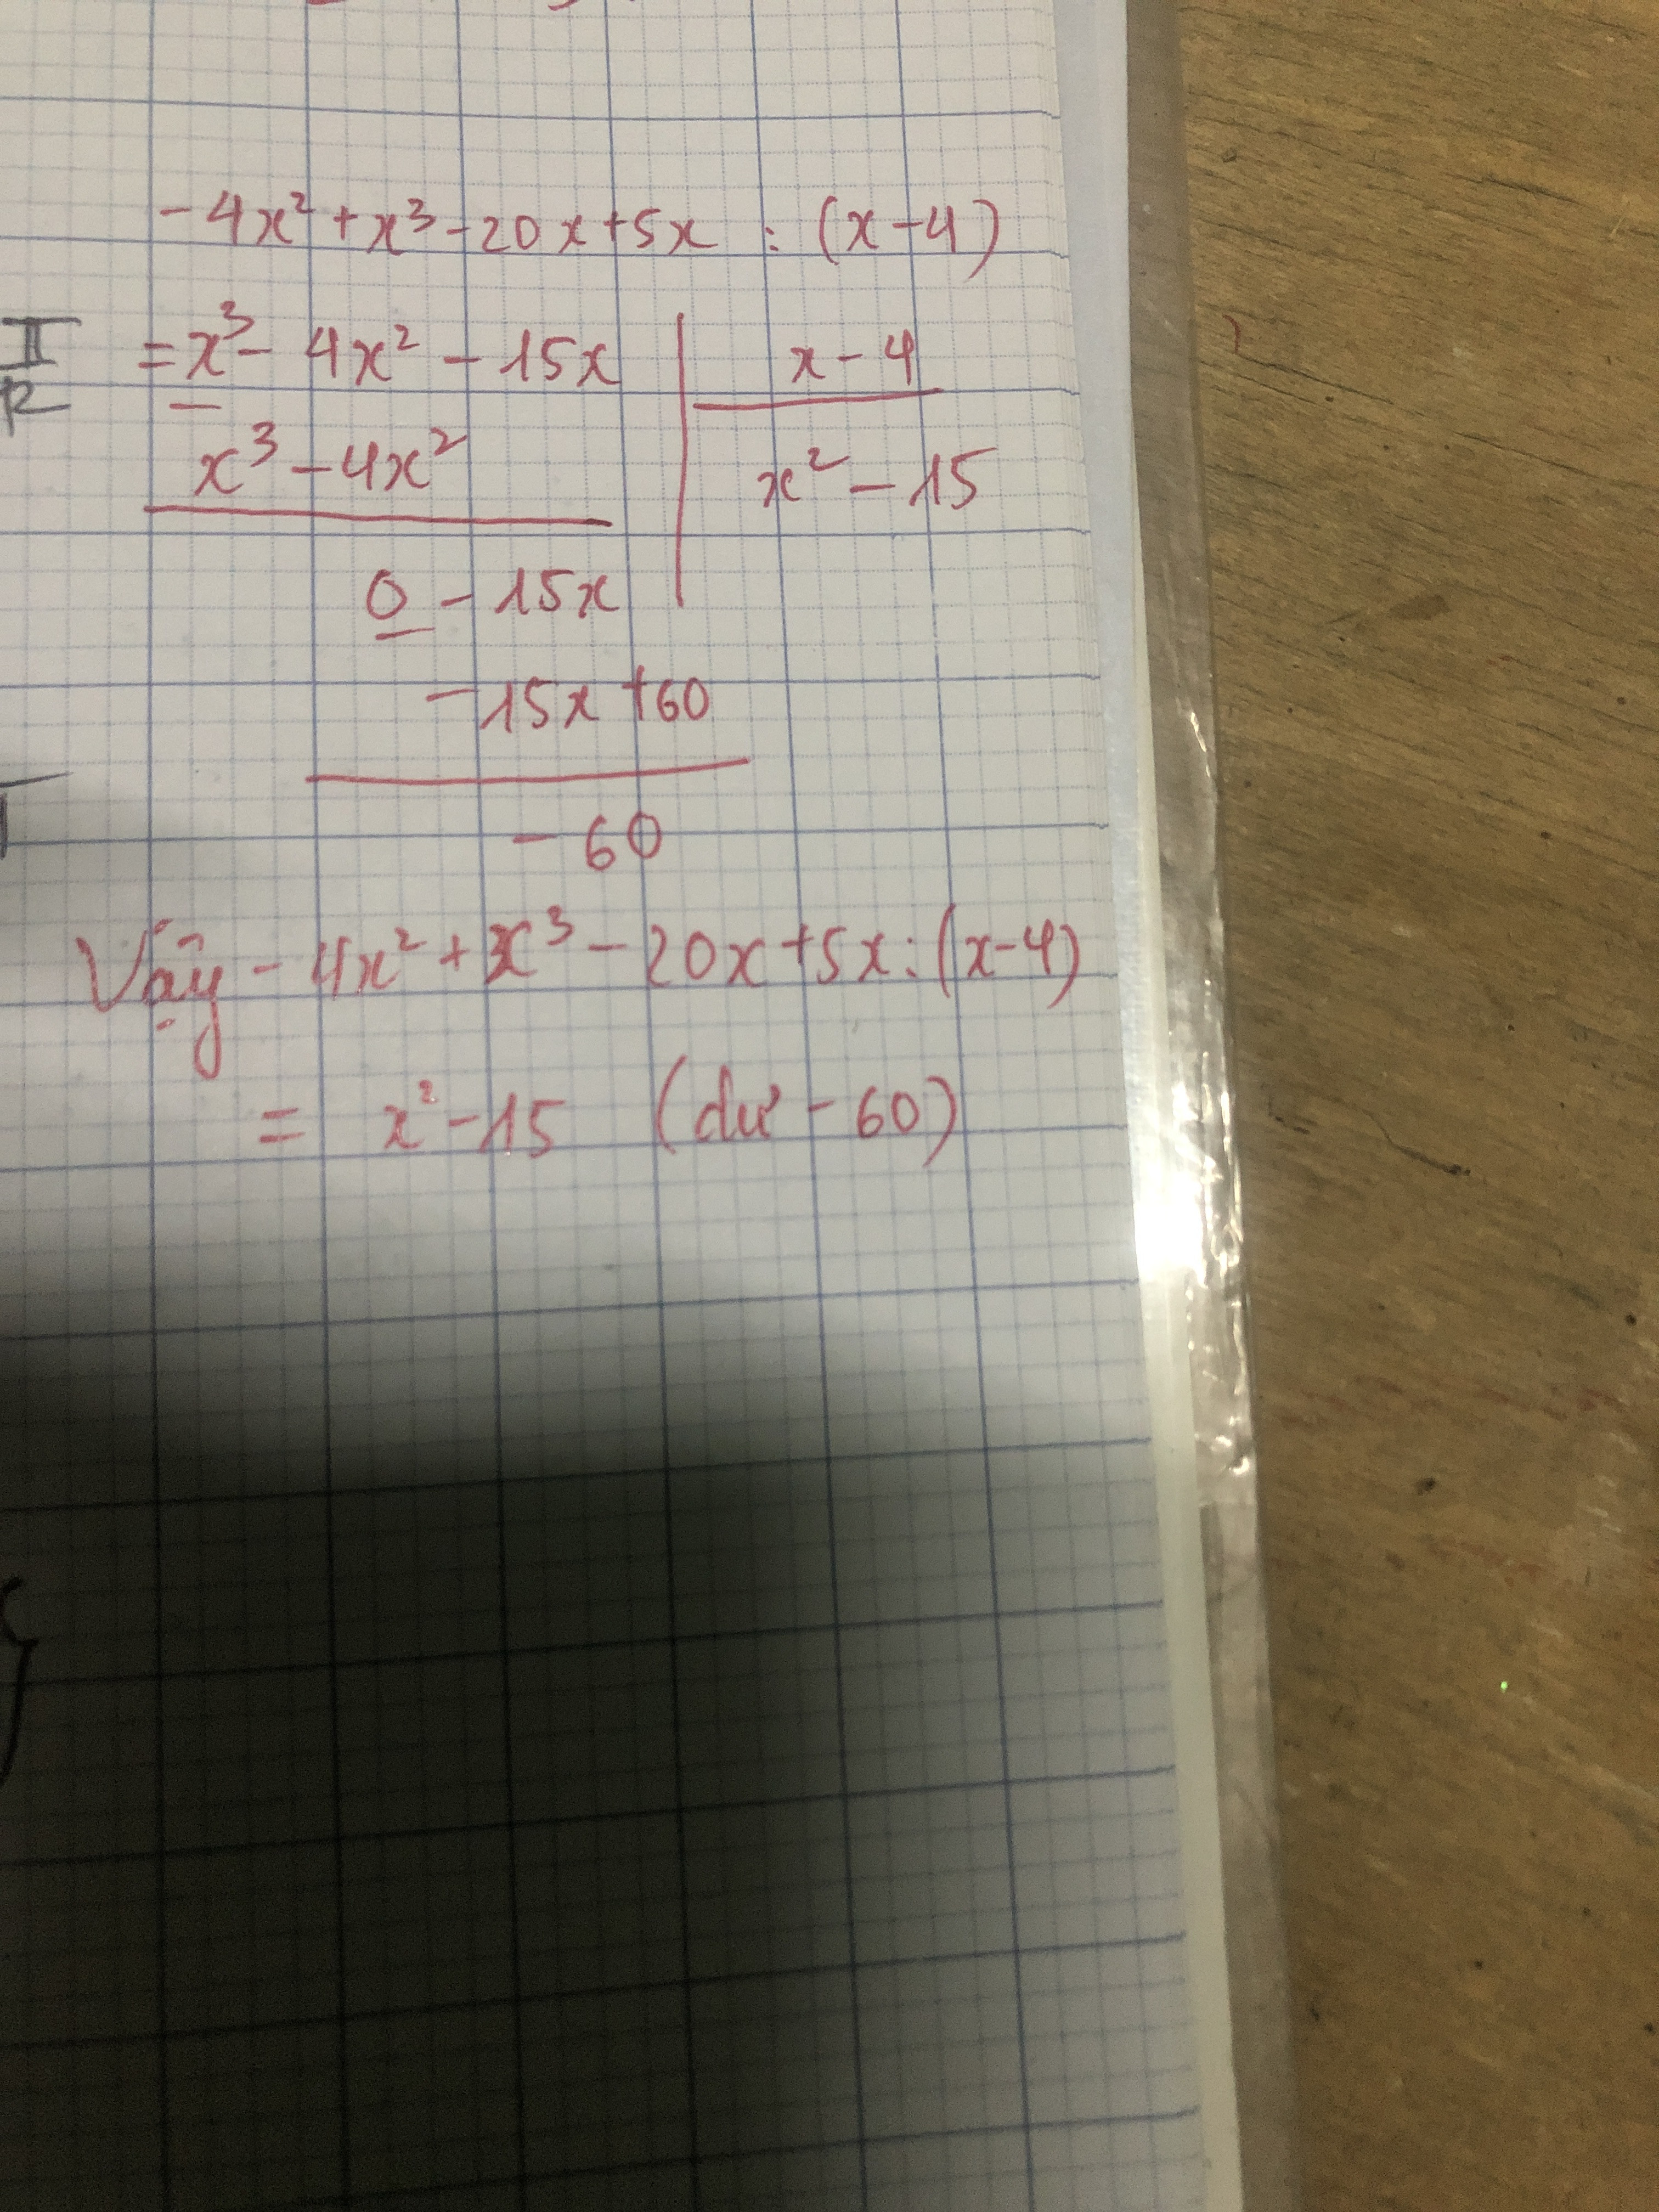 -4x² + x³ - 20x + 5x : (x - 4)
= x³ - 4x² - 15x | x - 4
x³ - 4x² | x² - 15
0 - 15x
- 15x + 60
- 60
Vậy - 4x² + x³ - 20x + 5x : (x - 4)
= x² - 15 (dư - 60)